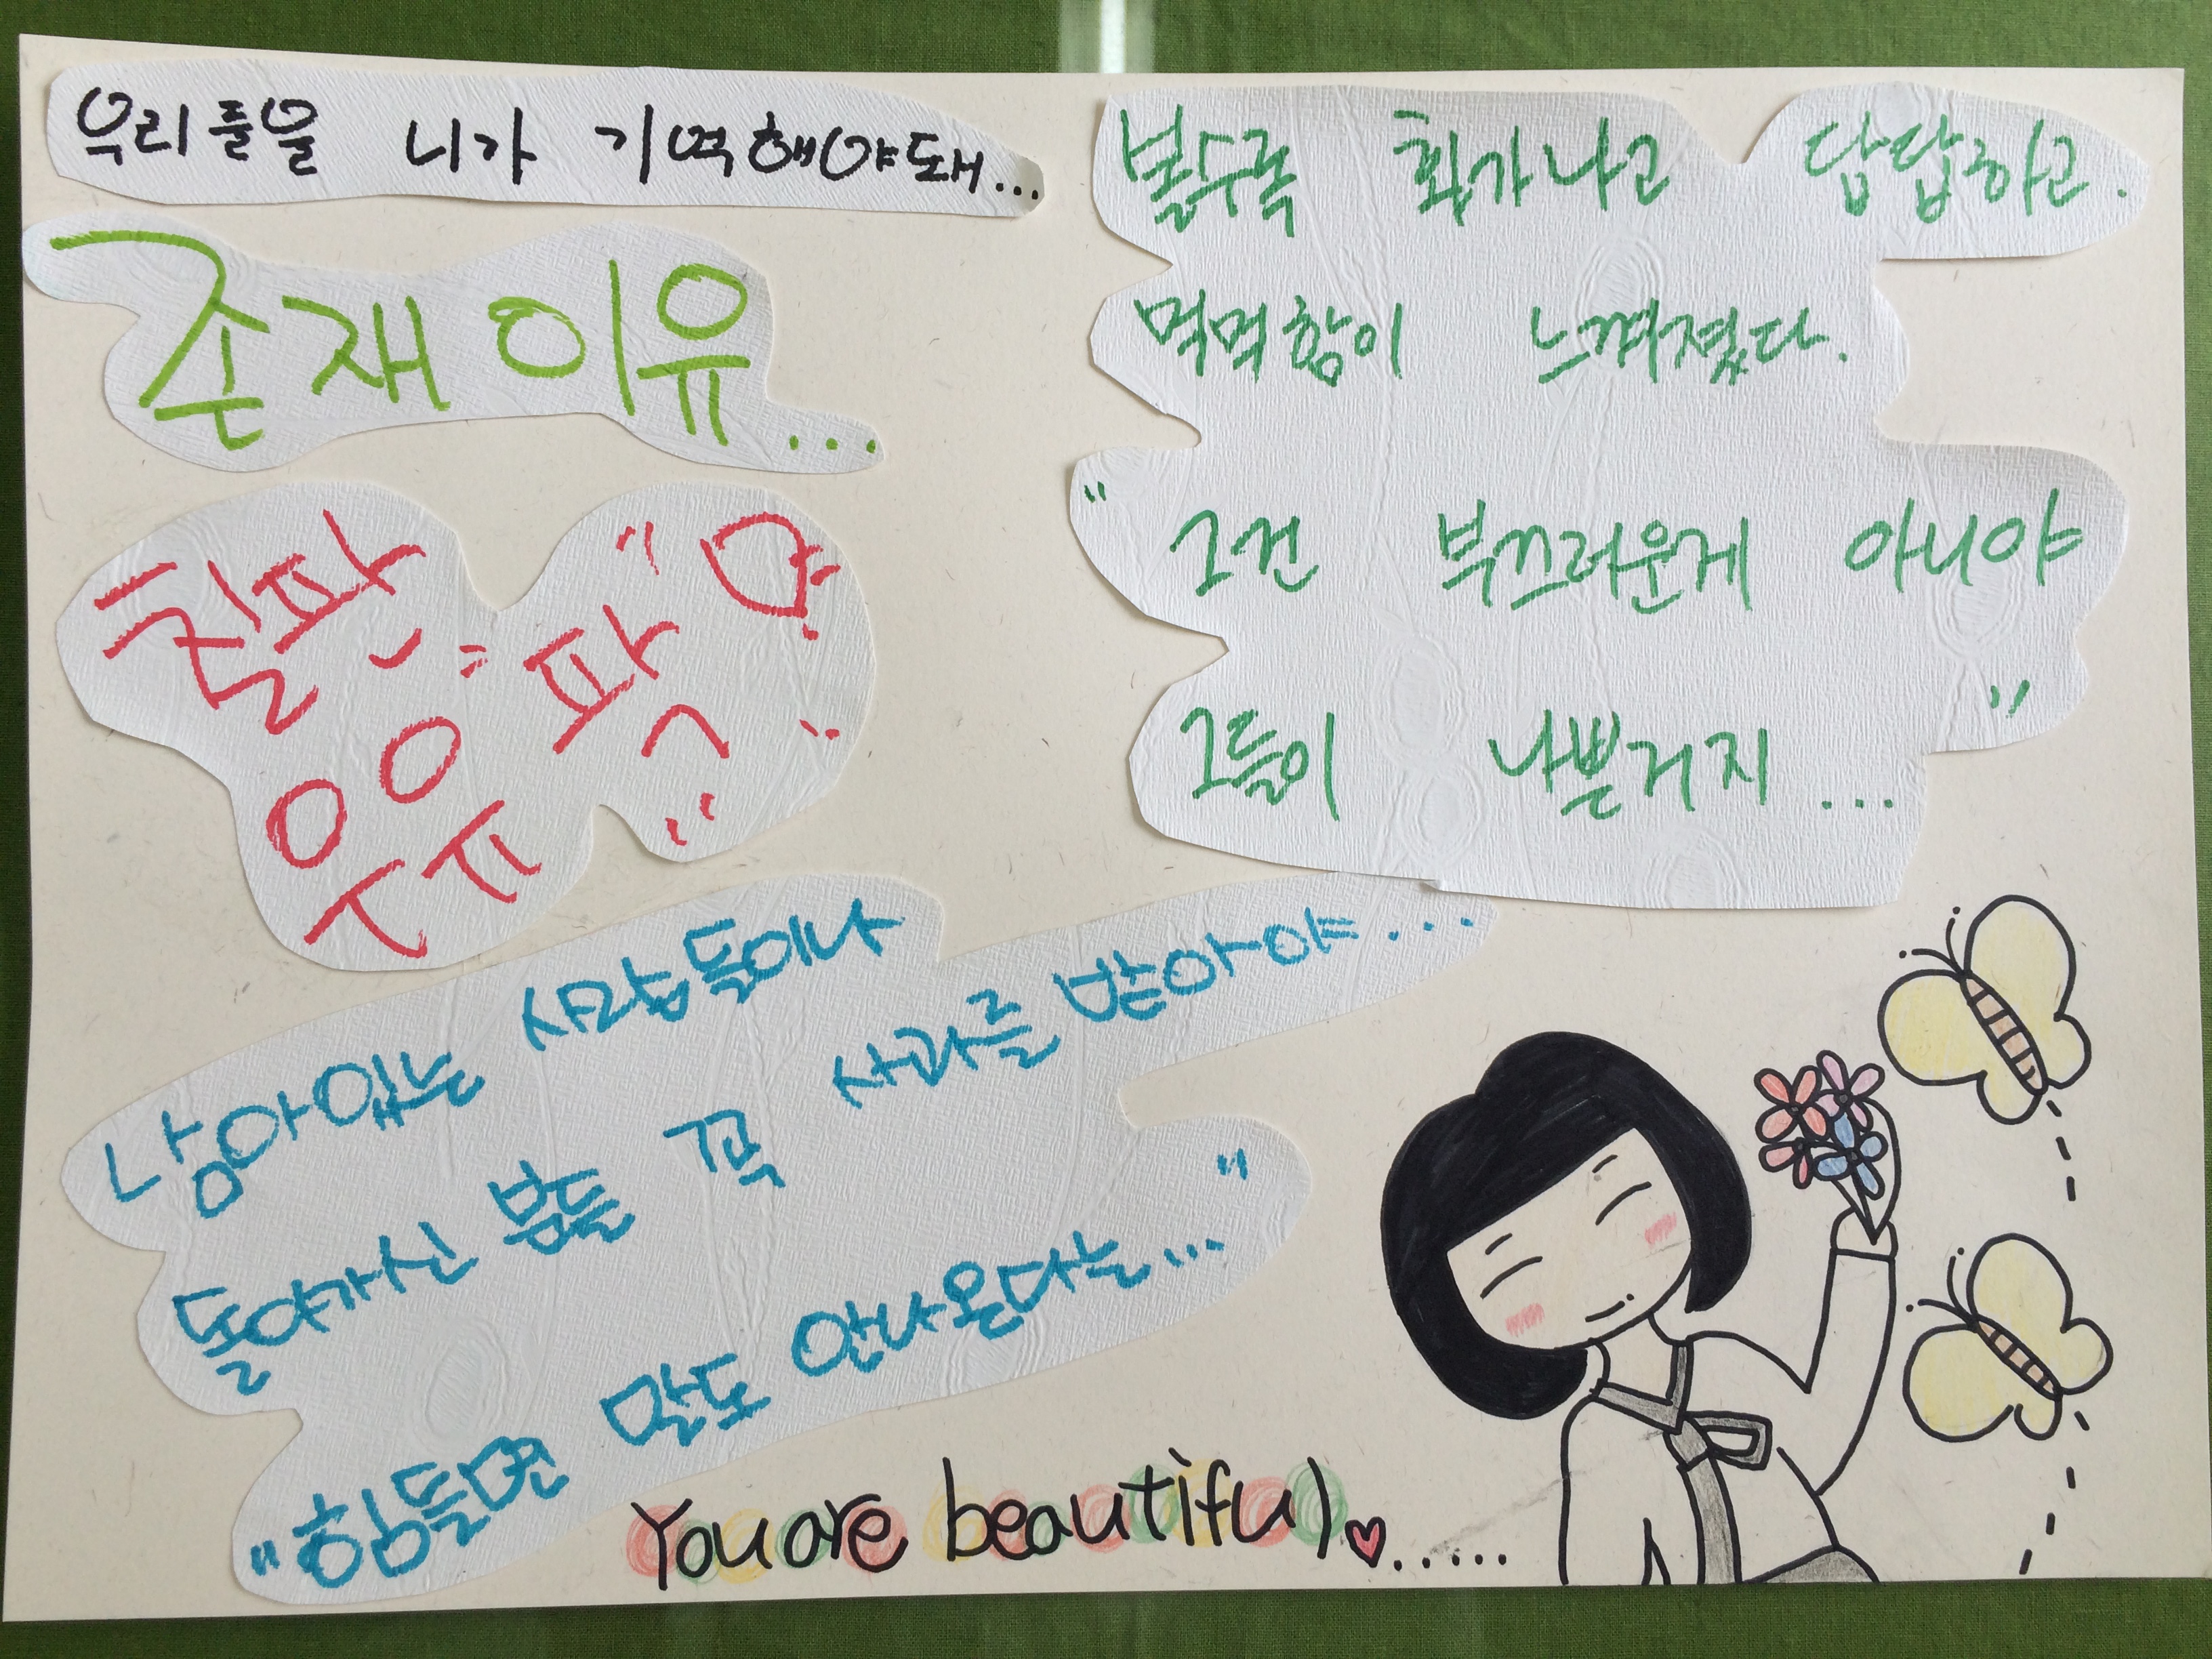 우리들을 니가 기억해야돼...
존재 이유...
볼수록 화가나고 답답하고.
먹먹함이 느껴졌다.
" 그건 부끄러운게 아니야
그들이 나쁜거지 ... "
남아있는 사람들이나
돌아가신 분들 꼭 사과를 받아야...
"힘들면 말도 안나온다는..."
You are beautiful♥......